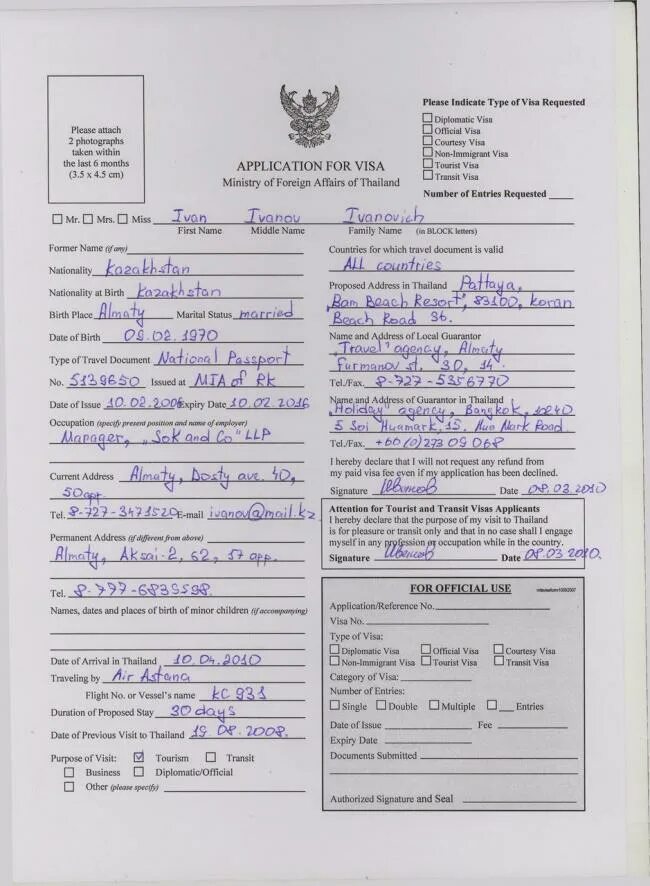 Please attach
2 photographs
taken within
the last 6 months
(3.5 x 4.5 cm)
APPLICATION FOR VISA
Ministry of Foreign Affairs of Thailand
Please Indicate Type of Visa Requested
Diplomatic Visa
Official Visa
Courtesy Visa
Non-Immigrant Visa
Tourist Visa
Transit Visa
Number of Entries Requested
Mr. Mrs. Miss Ivan Ivanov Ivanovich
First Name Middle Name Family Name (in BLOCK letters)
Former Name (if any)
Nationality Kazakhstan
Nationality at Birth Kazakhstan
Birth Place Almaty Marital Status married
Date of Birth 09.02.1970
Type of Travel Document National Passport
No. 5139650 Issued at MIA of RK
Date of Issue 10.02.2006 Expiry Date 10.02.2016
Occupation (specify present position and name of employer)
Manager, „Sok and Co" LLP
Current Address Almaty, Dosty ave. 40,
50 app.
Tel. 8-727-3471520 E-mail ivanov@mail.kz
Permanent Address (if different from above)
Almaty, Aksai-2, 62, 57 app.
Tel. 8-777-6835598.
Names, dates and places of birth of minor children (if accompanying)
Date of Arrival in Thailand 10.04.2010
Traveling by Air Astana
Flight No. or Vessel's name KC 931
Duration of Proposed Stay 30 days
Date of Previous Visit to Thailand 19.08.2008.
Purpose of Visit: Tourism Transit
Business Diplomatic/Official
Other (please specify)
Countries for which travel document is valid
All countries
Proposed Address in Thailand Pattaya,
„Bam Beach Resort", 83100, Koran
Beach Road 36.
Name and Address of Local Guarantor
„Travel" agency, Almaty
Furmanov st. 30, 14.
Tel./Fax. 8-727-5356770
Name and Address of Guarantor in Thailand
„Holiday" agency, Bangkok, 10240
5 Soi Huamark, 15. Hua Mark Road.
Tel./Fax. +60(0)273 09 068
I hereby declare that I will not request any refund from
my paid visa fee even if my application has been declined.
Signature Date 08.03.2010
Attention for Tourist and Transit Visas Applicants
I hereby declare that the purpose of my visit to Thailand
is for pleasure or transit only and that in no case shall I engage
myself in any profession or occupation while in the country.
Signature Date 08.03 2010.
FOR OFFICIAL USE
Application/Reference No.
Visa No.
Type of Visa:
Diplomatic Visa Official Visa Courtesy Visa
Non-Immigrant Visa Tourist Visa Transit Visa
Category of Visa:
Number of Entries:
Single Double Multiple Entries
Date of Issue Fee
Expiry Date
Documents Submitted
Authorized Signature and Seal